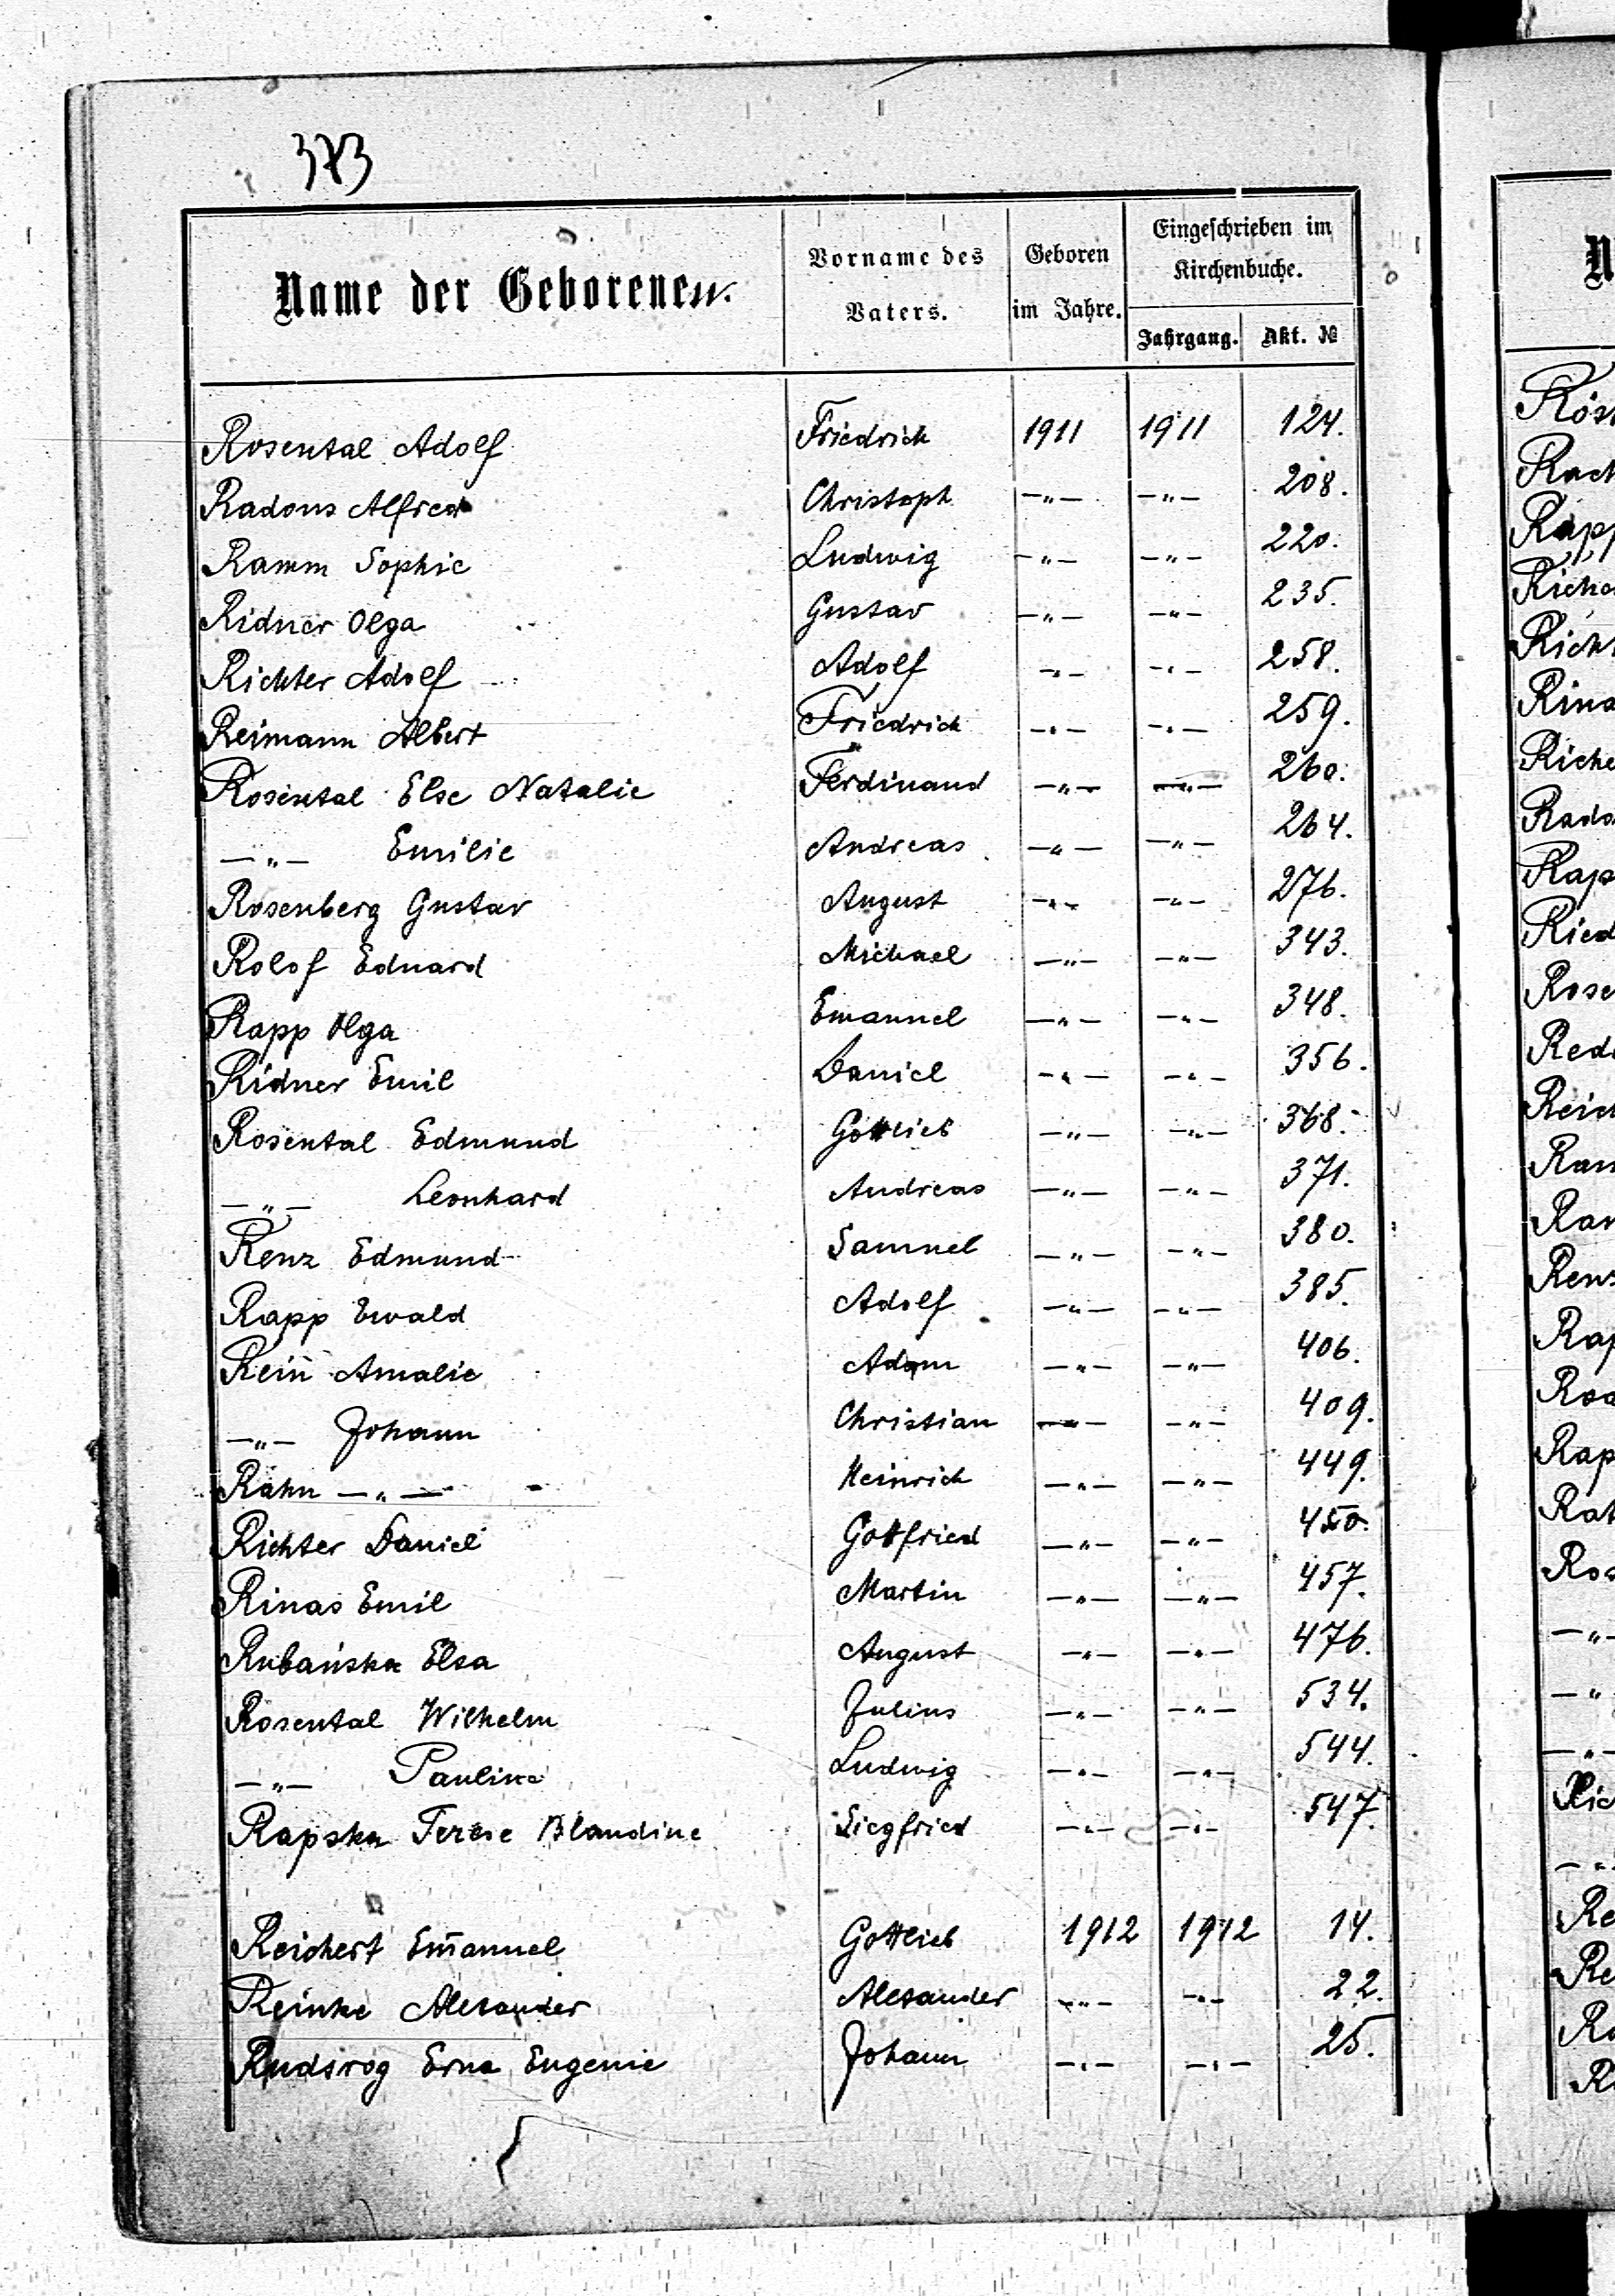 373
Name der Geborenen.
Vorname des Vaters.
Geboren im Jahre.
Eingeschrieben im Kirchenbuche.
Jahrgang. Akt. №
Rosental Adolf Friedrich 1911 1911 124.
Radons Alfred Christoph —"— —"— 208.
Ramm Sophie Ludwig —"— —"— 220.
Ridner Olga Gustav —"— —"— 235.
Richter Adolf Adolf —"— —"— 258.
Reimann Albert Friedrich —"— —"— 259.
Rosental Else Natalie Ferdinand —"— —"— 260.
—"— Emilie Andreas —"— —"— 264.
Rosenberg Gustav August —"— —"— 276.
Rolof Eduard Michael —"— —"— 343.
Rapp Olga Emanuel —"— —"— 348.
Ridner Emil Daniel —"— —"— 356.
Rosental Edmund Gottlieb —"— —"— 368.
—"— Leonhard Andreas —"— —"— 371.
Renz Edmund Samuel —"— —"— 380.
Rapp Ewald Adolf —"— —"— 385.
Rein Amalie Adam —"— —"— 406.
—"— Johann Christian —"— —"— 409.
Rahn —"— Heinrich —"— —"— 449.
Richter Daniel Gottfried —"— —"— 450.
Rinas Emil Martin —"— —"— 457.
Rubańska Elsa August —"— —"— 476.
Rosental Wilhelm Julius —"— —"— 534.
—"— Pauline Ludwig —"— —"— 544.
Rapska Terese Blandine Siegfried —"— —"— 547.
Reichert Em̄anuel Gottlieb 1912 1912 14.
Reinke Alexander Alexander —"— —"— 22.
Rudsrog Erna Eugenie Johann —"— —"— 25.